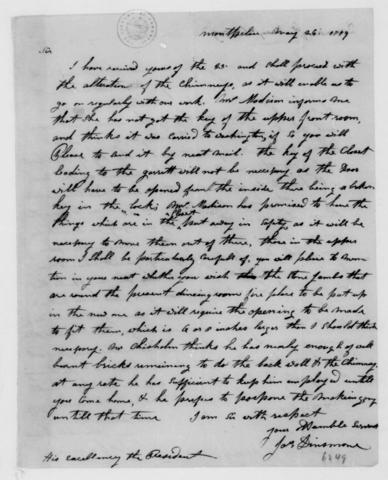 Montpelier May 26. 1809
Sir
I have received yours of the 23d and shall proceed with
the alteration of the Chimneys, as it will enable us to
go on regularly with our work. Mrs Madison informs me
that she has not got the key of the upper front room,
and thinks it was carried to washington, if so you will
Please to send it by next mail. the key of the Closet
leading to the garrett will not be necessary as the Door
will have to be opened from the inside there being a broken
key in the lock; Mrs Madison has promised to have the
things which are in the Closet put away in safety, as it will be
necessary to move them out of there, those in the upper
room I shall be particularly carefull of, you will please to
mention in your next whether you wish the three jambs that
are round the present dineing room fire place to be put up
in the new one as it will require the opening to be made
to fit them, which is 4 or 6 inches larger then I should think
necessary. Mr Chisholm thinks he has nearly enough of well
burnt bricks remaining to do the back wall & the Chimneys
at any rate he has sufficient to keep him employed untill
you come home, & he prefers to postpone the making any
untill that time
I am Sir with respect
your Humble Servant
Jas Dinsmore
His excellency the President
6249